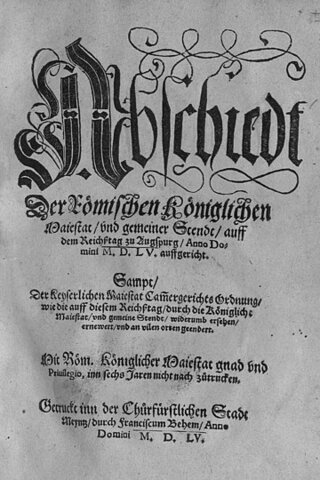 Abschiedt
Der Römischen Königlichen
Maiestat/ vnd gemeiner Stende/ auff
dem Reichſztag zu Augſpurg/ Anno Do-
mini M. D. LV. auffgericht.
Sampt/
Der Keyſerlichen Maieſtat Cam̃ergerichts Ordnung/
wie die auff dieſem Reichſztag/ durch die Königliche
Maieſtat/ vnd gemeine Stende/ widerumb erſehen/
ernewert/ vnd an vilen orten geendert.
Mit Röm. Königlicher Maieſtat gnad vnd
Priuilegio, inn ſechs Jaren nicht nach zůtrucken.
Getruckt inn der Chürfürſtlichen Statt
Meyntz/ durch Franciſcum Behem/ Anno
Domini M. D. LV.